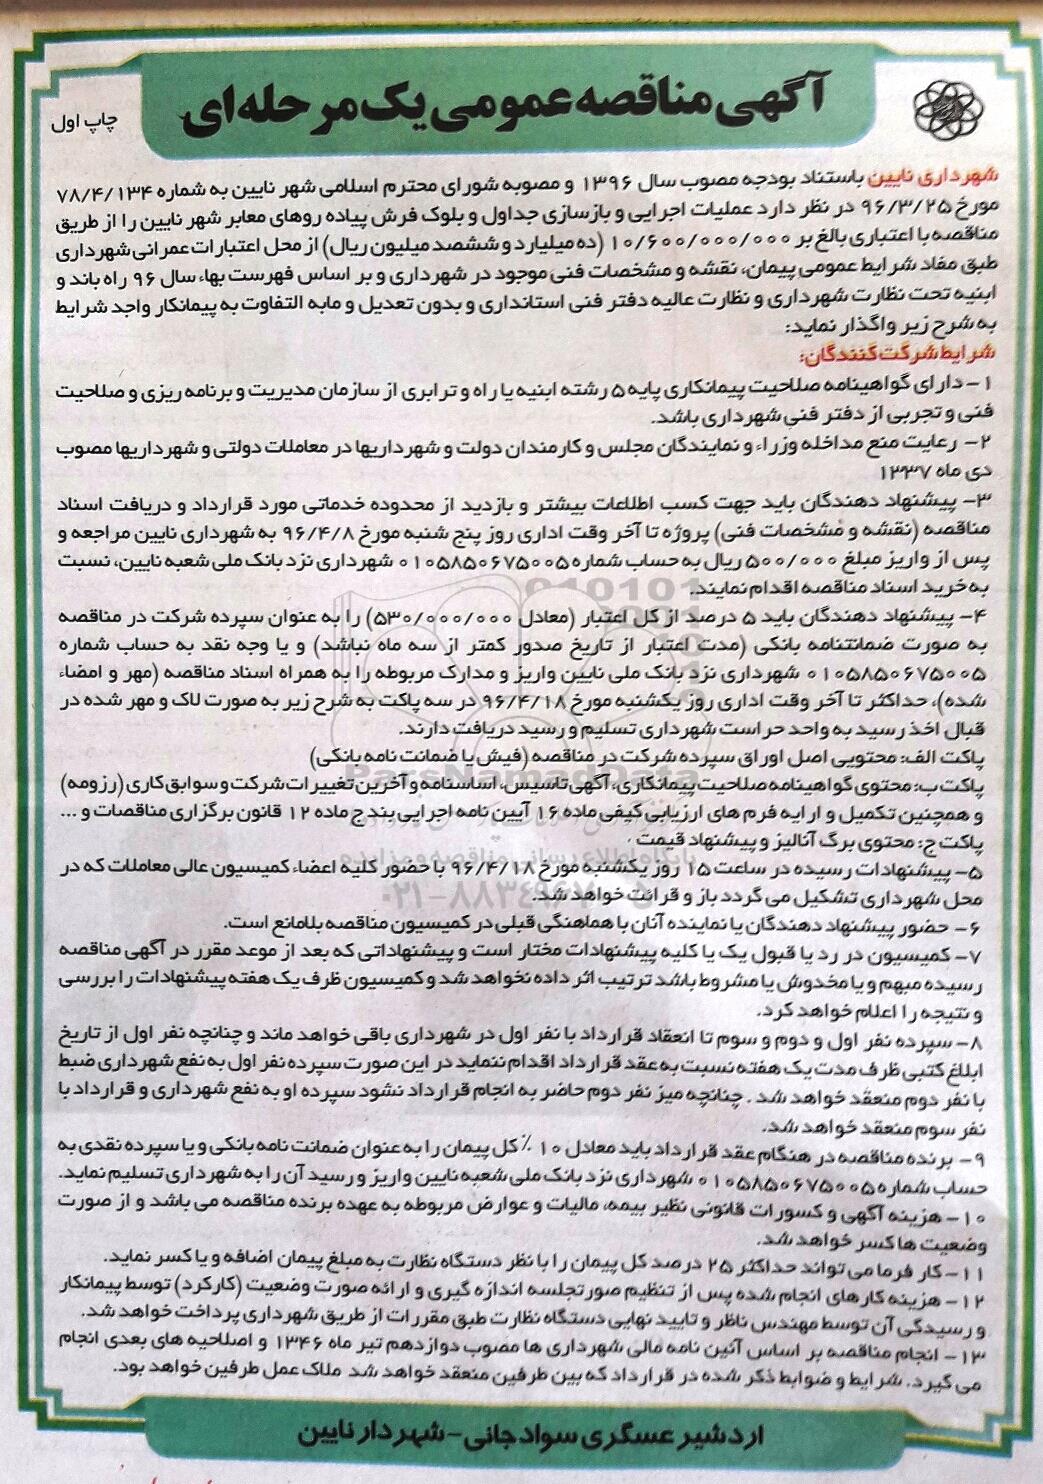 آگهی مناقصه عمومی یک مرحله ای
چاپ اول
شهرداری نایین باستناد بودجه مصوب سال ۱۳۹۶ و مصوبه شورای محترم اسلامی شهر نایین به شماره ۷۸/۴/۱۳۴
مورخ ۹۶/۳/۲۵ در نظر دارد عملیات اجرایی و بازسازی جداول و بلوک فرش پیاده روهای معابر شهر نایین را از طریق
مناقصه با اعتباری بالغ بر ۱۰/۶۰۰/۰۰۰/۰۰۰ (ده میلیارد و ششصد میلیون ریال) از محل اعتبارات عمرانی شهرداری
طبق مفاد شرایط عمومی پیمان، نقشه و مشخصات فنی موجود در شهرداری و بر اساس فهرست بهاء سال ۹۶ راه باند و
ابنیه تحت نظارت شهرداری و نظارت عالیه دفتر فنی استانداری و بدون تعدیل و مابه التفاوت به پیمانکار واجد شرایط
به شرح زیر واگذار نماید:
شرایط شرکت کنندگان:
۱- دارای گواهینامه صلاحیت پیمانکاری پایه ۵ رشته ابنیه یا راه و ترابری از سازمان مدیریت و برنامه ریزی و صلاحیت
فنی و تجربی از دفتر فنی شهرداری باشد.
۲- رعایت منع مداخله وزراء و نمایندگان مجلس و کارمندان دولت و شهرداریها در معاملات دولتی و شهرداریها مصوب
دی ماه ۱۳۳۷
۳- پیشنهاد دهندگان باید جهت کسب اطلاعات بیشتر و بازدید از محدوده خدماتی مورد قرارداد و دریافت اسناد
مناقصه (نقشه و مشخصات فنی) پروژه تا آخر وقت اداری روز پنج شنبه مورخ ۹۶/۴/۸ به شهرداری نایین مراجعه و
پس از واریز مبلغ ۵۰۰/۰۰۰ ریال به حساب شماره ۰۱۰۵۸۵۰۶۷۵۰۰۵ شهرداری نزد بانک ملی شعبه نایین، نسبت
به خرید اسناد مناقصه اقدام نمایند.
۴- پیشنهاد دهندگان باید ۵ درصد از کل اعتبار (معادل ۵۳۰/۰۰۰/۰۰۰) را به عنوان سپرده شرکت در مناقصه
به صورت ضمانتنامه بانکی (مدت اعتبار از تاریخ صدور کمتر از سه ماه نباشد) و یا وجه نقد به حساب شماره
۰۱۰۵۸۵۰۶۷۵۰۰۵ شهرداری نزد بانک ملی نایین واریز و مدارک مربوطه را به همراه اسناد مناقصه (مهر و امضاء
شده)، حداکثر تا آخر وقت اداری روز یکشنبه مورخ ۹۶/۴/۱۸ در سه پاکت به شرح زیر به صورت لاک و مهر شده در
قبال اخذ رسید به واحد حراست شهرداری تسلیم و رسید دریافت دارند.
پاکت الف: محتویی اصل اوراق سپرده شرکت در مناقصه (فیش یا ضمانت نامه بانکی)
پاکت ب: محتوی گواهینامه صلاحیت پیمانکاری، آگهی تاسیس، اساسنامه و آخرین تغییرات شرکت و سوابق کاری (رزومه)
و همچنین تکمیل و ارایه فرم های ارزیابی کیفی ماده ۱۶ آیین نامه اجرایی بند ج ماده ۱۲ قانون برگزاری مناقصات و ...
پاکت ج: محتوی برگ آنالیز و پیشنهاد قیمت
۵- پیشنهادات رسیده در ساعت ۱۵ روز یکشنبه مورخ ۹۶/۴/۱۸ با حضور کلیه اعضاء کمیسیون عالی معاملات که در
محل شهرداری تشکیل می گردد باز و قرائت خواهد شد.
۶- حضور پیشنهاد دهندگان یا نماینده آنان با هماهنگی قبلی در کمیسیون مناقصه بلامانع است.
۷- کمیسیون در رد یا قبول یک یا کلیه پیشنهادات مختار است و پیشنهاداتی که بعد از موعد مقرر در آگهی مناقصه
رسیده مبهم و یا مخدوش یا مشروط باشد ترتیب اثر داده نخواهد شد و کمیسیون ظرف یک هفته پیشنهادات را بررسی
و نتیجه را اعلام خواهد کرد.
۸- سپرده نفر اول و دوم و سوم تا انعقاد قرارداد با نفر اول در شهرداری باقی خواهد ماند و چنانچه نفر اول از تاریخ
ابلاغ کتبی ظرف مدت یک هفته نسبت به عقد قرارداد اقدام ننماید در این صورت سپرده نفر اول به نفع شهرداری ضبط
با نفر دوم منعقد خواهد شد . چنانچه میز نفر دوم حاضر به انجام قرارداد نشود سپرده او به نفع شهرداری و قرارداد با
نفر سوم منعقد خواهد شد.
۹- برنده مناقصه در هنگام عقد قرارداد باید معادل ۱۰ ٪ کل پیمان را به عنوان ضمانت نامه بانکی و یا سپرده نقدی به
حساب شماره ۰۱۰۵۸۵۰۶۷۵۰۰۵ شهرداری نزد بانک ملی شعبه نایین واریز و رسید آن را به شهرداری تسلیم نماید.
۱۰- هزینه آگهی و کسورات قانونی نظیر بیمه، مالیات و عوارض مربوطه به عهده برنده مناقصه می باشد و از صورت
وضعیت ها کسر خواهد شد.
۱۱- کار فرما می تواند حداکثر ۲۵ درصد کل پیمان را با نظر دستگاه نظارت به مبلغ پیمان اضافه و یا کسر نماید.
۱۲- هزینه کارهای انجام شده پس از تنظیم صورتجلسه اندازه گیری و ارائه صورت وضعیت (کارکرد) توسط پیمانکار
و رسیدگی آن توسط مهندس ناظر و تایید نهایی دستگاه نظارت طبق مقررات از طریق شهرداری پرداخت خواهد شد.
۱۳- انجام مناقصه بر اساس آئین نامه مالی شهرداری ها مصوب دوازدهم تیر ماه ۱۳۴۶ و اصلاحیه های بعدی انجام
می گیرد. شرایط و ضوابط ذکر شده در قرارداد که بین طرفین منعقد خواهد شد ملاک عمل طرفین خواهد بود.
اردشیر عسگری سوادجانی - شهردار نایین
ParsNamadData